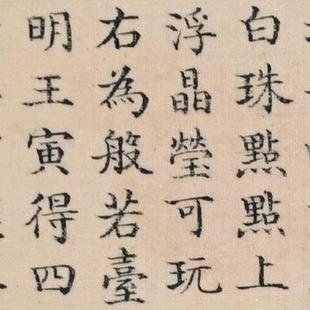 白珠點點上
浮晶瑩可玩
右為般若臺
明王寅得四